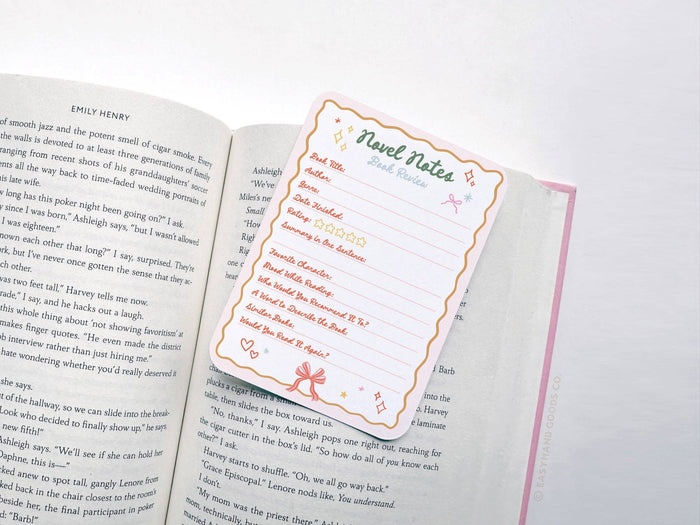 EMILY HENRY
of smooth jazz and the potent smell of cigar smoke. Every
the walls is devoted to at least three generations of family
ranging from recent shots of his granddaughters' soccer
ents all the way back to time-faded wedding portraits of
his late wife.
w long has this poker night been going on?" I ask.
y since I was born," Ashleigh says, "but I wasn't allowed
I was eighteen."
nown each other that long?" I say, surprised. They're
rk, but I've never once gotten the sense that they ac-
ch other.
was two feet tall," Harvey tells me now.
rade," I say, and he hacks out a laugh.
this whole thing about 'not showing favoritism' at
makes finger quotes. "He even made the district
b interview rather than just hiring me."
hate wondering whether you'd really deserved it
she says.
t of the hallway, so we can slide into the break-
Look who decided to finally show up," he says.
new fifth!"
Ashleigh says. "We'll see if she can hold her
Daphne, this is—"
cked anew to spot tall, gangly Lenore from
ked back in the chair closest to the room's
beside her, the final participant in poker
d: "Barb!"
Ashleigh
"We've
Miles's ne
Small
"How
Right
Righ
one c
Barb
plucks a cigar from a small
Harvey
e laminate
table, then slides the box toward us.
"No, thanks," I say. Ashleigh pops one right out, reaching for
the cigar cutter in the box's lid. "So how do all of you know each
other?" I ask.
Harvey starts to shuffle. "Oh, we all go way back."
"Grace Episcopal." Lenore nods like, You understand.
I don't.
"My mom was the priest there"
mom, technically, bu
married
Novel Notes
Book Review
Book Title:
Author:
Genre:
Date Finished:
Rating:
Summary in One Sentence:
Favorite Character:
Mood While Reading:
Who Would You Recommend It To?
A Word to Describe the Book:
Similar Books:
Would You Read It Again?
© EASYHAND GOODS CO.